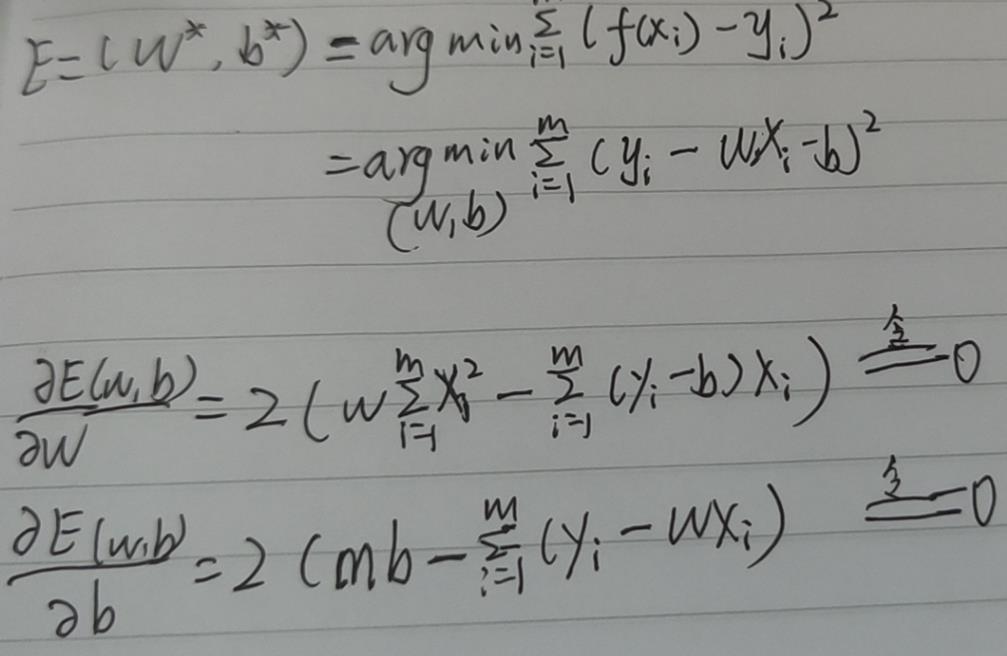 E=(w*, b*) = arg min Σ_{i=1} (f(x_i) - y_i)²
= arg min_{(w,b)} Σ_{i=1}^{m} (y_i - wx_i - b)²
∂E(w,b)/∂w = 2(w Σ_{i=1}^{m} x_i² - Σ_{i=1}^{m} (y_i - b)x_i) 令= 0
∂E(w,b)/∂b = 2(mb - Σ_{i=1}^{m} (y_i - wx_i) 令= 0